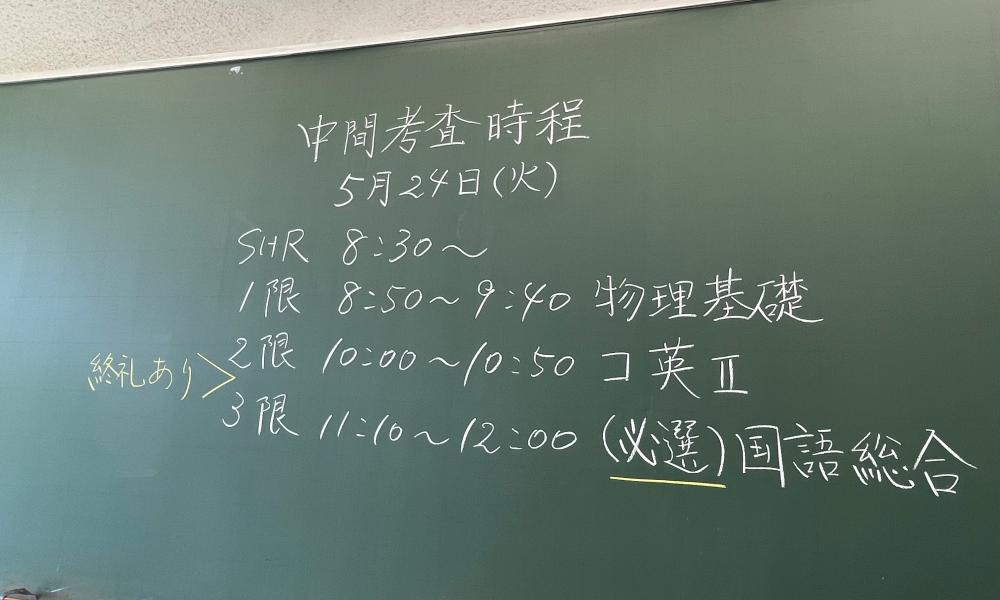 中間考査時程
5月24日(火)
SHR 8:30～
1限 8:50～9:40 物理基礎
2限 10:00～10:50 コ英Ⅱ
終礼あり＞
3限 11:10～12:00 (必選)国語総合